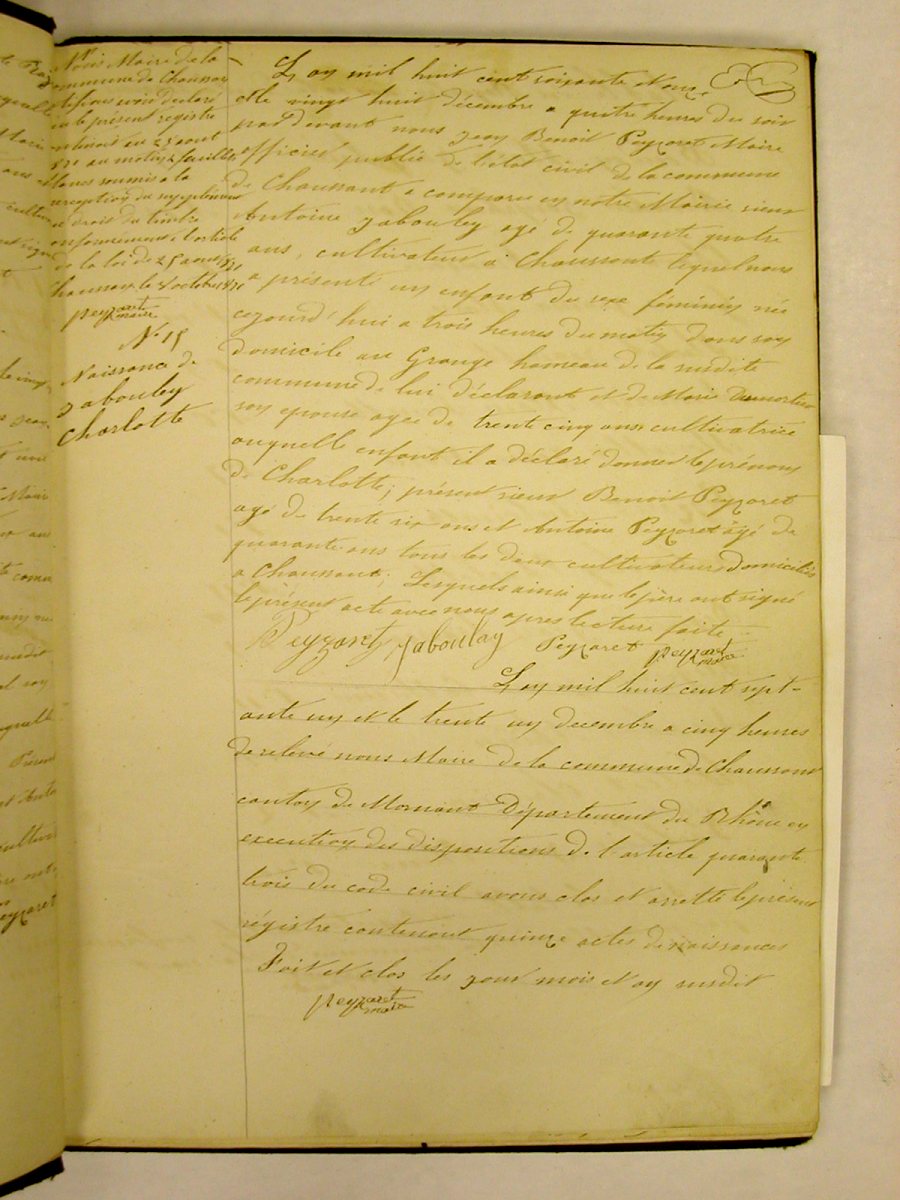 Nous Maire de la
commune de Chaussan
avoir déclaré
le présent registre
au 25 aout
1871 au moties feuilles
blancs soumis a la
perception du supplément
de droit du timbre
conformement à l'article
de la loi du 25 aout 1871
Chaussan le 8 octobre 1871
Peyzaret
maire
N° 15
Naissance de
Jabouley
Charlotte
L'an mil huit cent soixante et onze
et le vingt huit décembre a quatre heures du soir
pard devant nous Jean Benoit Peyzaret Maire
officier public de l'état civil de la commune
de Chaussant a comparu en notre Mairie sieur
Antoine Jabouley agé de quarante quatre
ans, cultivateur a Chaussant lequel nous
a présenté un enfant du sexe féminin née
cejourd'hui a trois heures du matin dans son
domicile au Grange hameau de la susdite
commune de lui déclarant et de Marie Dumortier
son epouse agée de trente cinq ans cultivatrice
auquelle enfant il a déclaré donner le prénom
de Charlotte; présent sieur Benoit Peyzaret
agé de trente six ans et Antoine Peyzaret âgé de
quarante ans tous les deux cultivateurs domiciliés
a Chaussant; Lesquels ainsi que le père ont signé
le présent acte avec nous apres lecture faite
Peyzaret Jaboulay Peyzaret Peyzaret
maire
L'an mil huit cent sept-
ante un et le trente un decembre a cinq heures
de relevé nous Maire de la commune de Chaussant
canton de Mornant Département du Rhône en
execution des dispositions de l'article quarante
trois du code civil avons clos et arretté le présent
régistre contenant quinze actes de naissances
Fait et clos les jour mois et an susdit
Peyzaret
maire